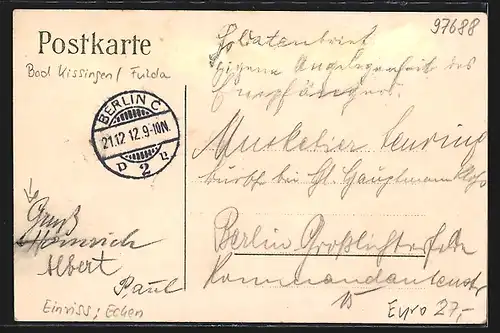 97688
Postkarte
Soldatenbrief
Eigene Angelegenheit des
Empfängers.
Bad Kissingen / Fulda
BERLIN C
21.12 12. 9-10N.
2
Musketier
bei
Hauptmann
Berlin Großlichterfelde
Kommandantenstr
15
Gruß
Heinrich
Albert
Paul
Einriss; Ecken
Euro 27,-